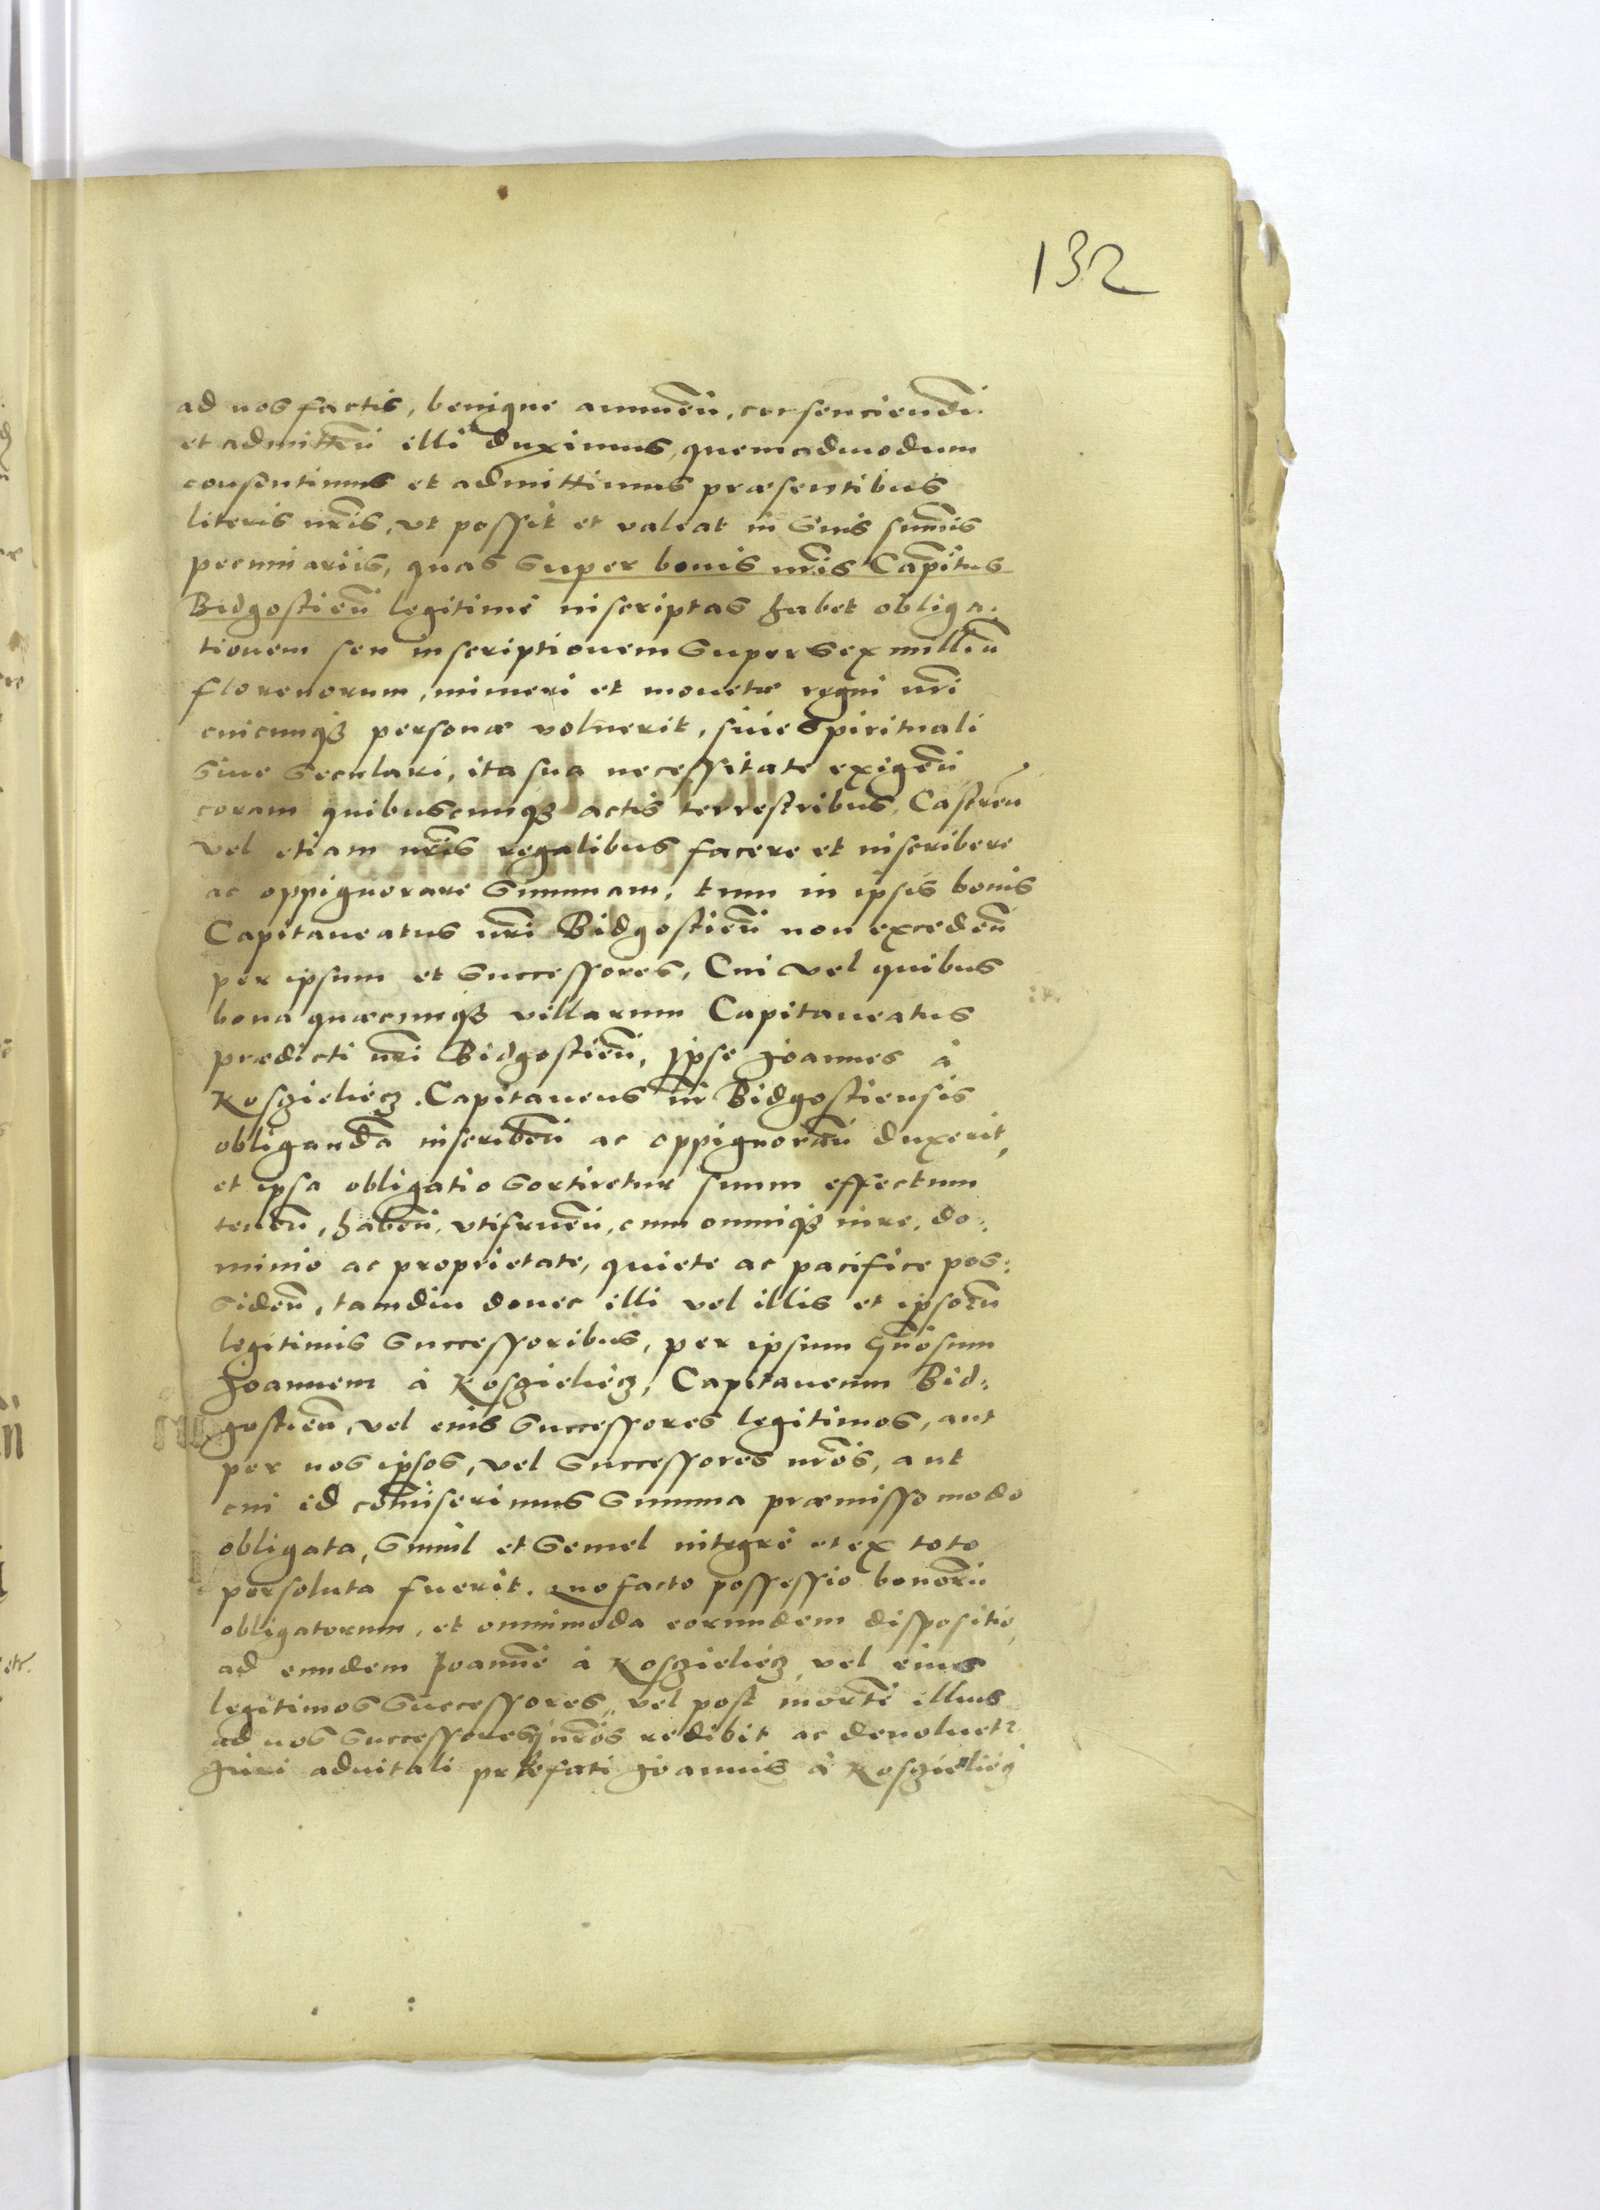 132
ad nos factis, benigne annuen̄, consenciendū
et admitten̄ illi duximus, quemadmodum
consentimus et admittimus præsentibus
literis nr̄is, vt possit et valeat in suis sum̄is
pecuniariis, quas super bonis nr̄is Capn̄itus
Bidgostien̄ legitime inscriptas habet obliga-
tionem seu inscriptionem super sex milliū
florenorum, numeri et monetæ regni nr̄i
cuicunq₃ personæ voluerit, siue spirituali
siue seculari, ita sua necessitate exigen̄
coram quibuscunq₃ actis terrestribus, Castren̄
vel etiam nr̄is regalibus facere et inscribere
ac oppignorare summam, tum in ipsis bonis
Capitaneatus nr̄i Bidgostien̄ non exceden̄
per ipsum et successores, Cui vel quibus
bona quæcunq₃ villarum Capitaneatus
prædicti nr̄i Bidgostien̄, Ipse Joannes à
Kosczieliecz. Capitaneus nr̄ Bidgostiensis
obliganda inscriben̄ ac oppignoran̄ duxerit,
et ipsa obligatio sortiretur suum effectum
tenen̄, haben̄, vtifruen̄, cum omniq₃ iure, do:
minio ac proprietate, quiete ac pacifice pos:
siden̄, tamdiu donec illi vel illis et ipsorū
legitimis successoribus, per ipsum Gn̄osum
Joannem à Kosczieliecz, Capitaneum Bid:
gostien̄, vel eius successores legitimos, aut
per nos ipsos, vel successores nr̄os, aut
cui id com̄iserimus summa præmisso modo
obligata, simul et semel integre et ex toto
persoluta fuerit. Quo facto possessio bonorū
obligatorum, et omnimoda eorundem dispositio,
ad eundem Joannē à Kosczieliecz, vel eius
legitimos successores, vel post mortē illius
ad nos successoresq₃ nr̄os redibit ac deuoluetr
Juri aduitali præfati Joannis à Kosczieliecz